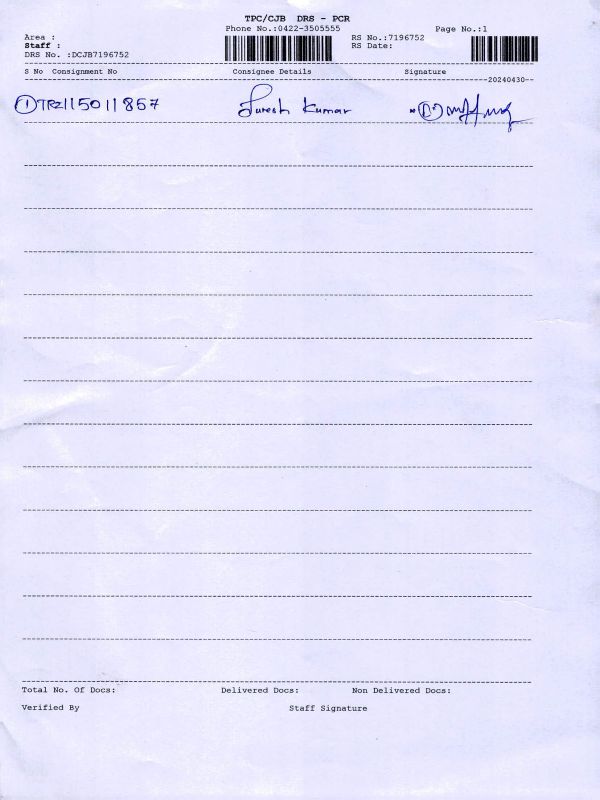 TPC/CJB DRS - PCR
Phone No.:0422-3505555
Page No.:1
Area :
RS No.:7196752
Staff :
RS Date:
DRS No. :DCJB7196752
S No Consignment No Consignee Details Signature
20240430
① TRZ115011857 Suresh Kumar
Total No. Of Docs: Delivered Docs: Non Delivered Docs:
Verified By Staff Signature